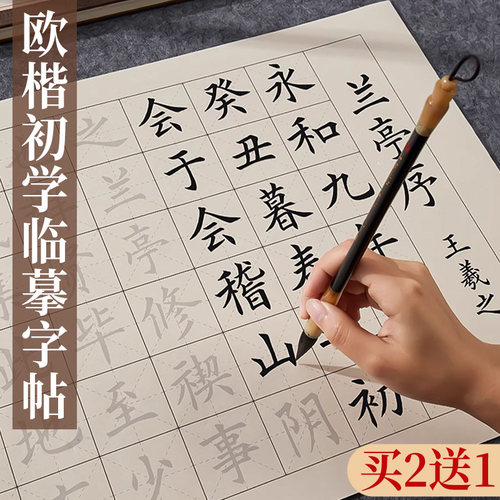 欧楷初学临摹字帖
兰亭序
王羲之
永和九年
癸丑暮
初
会于会稽山阴
之兰亭修禊事
毕至少
地
买2送1